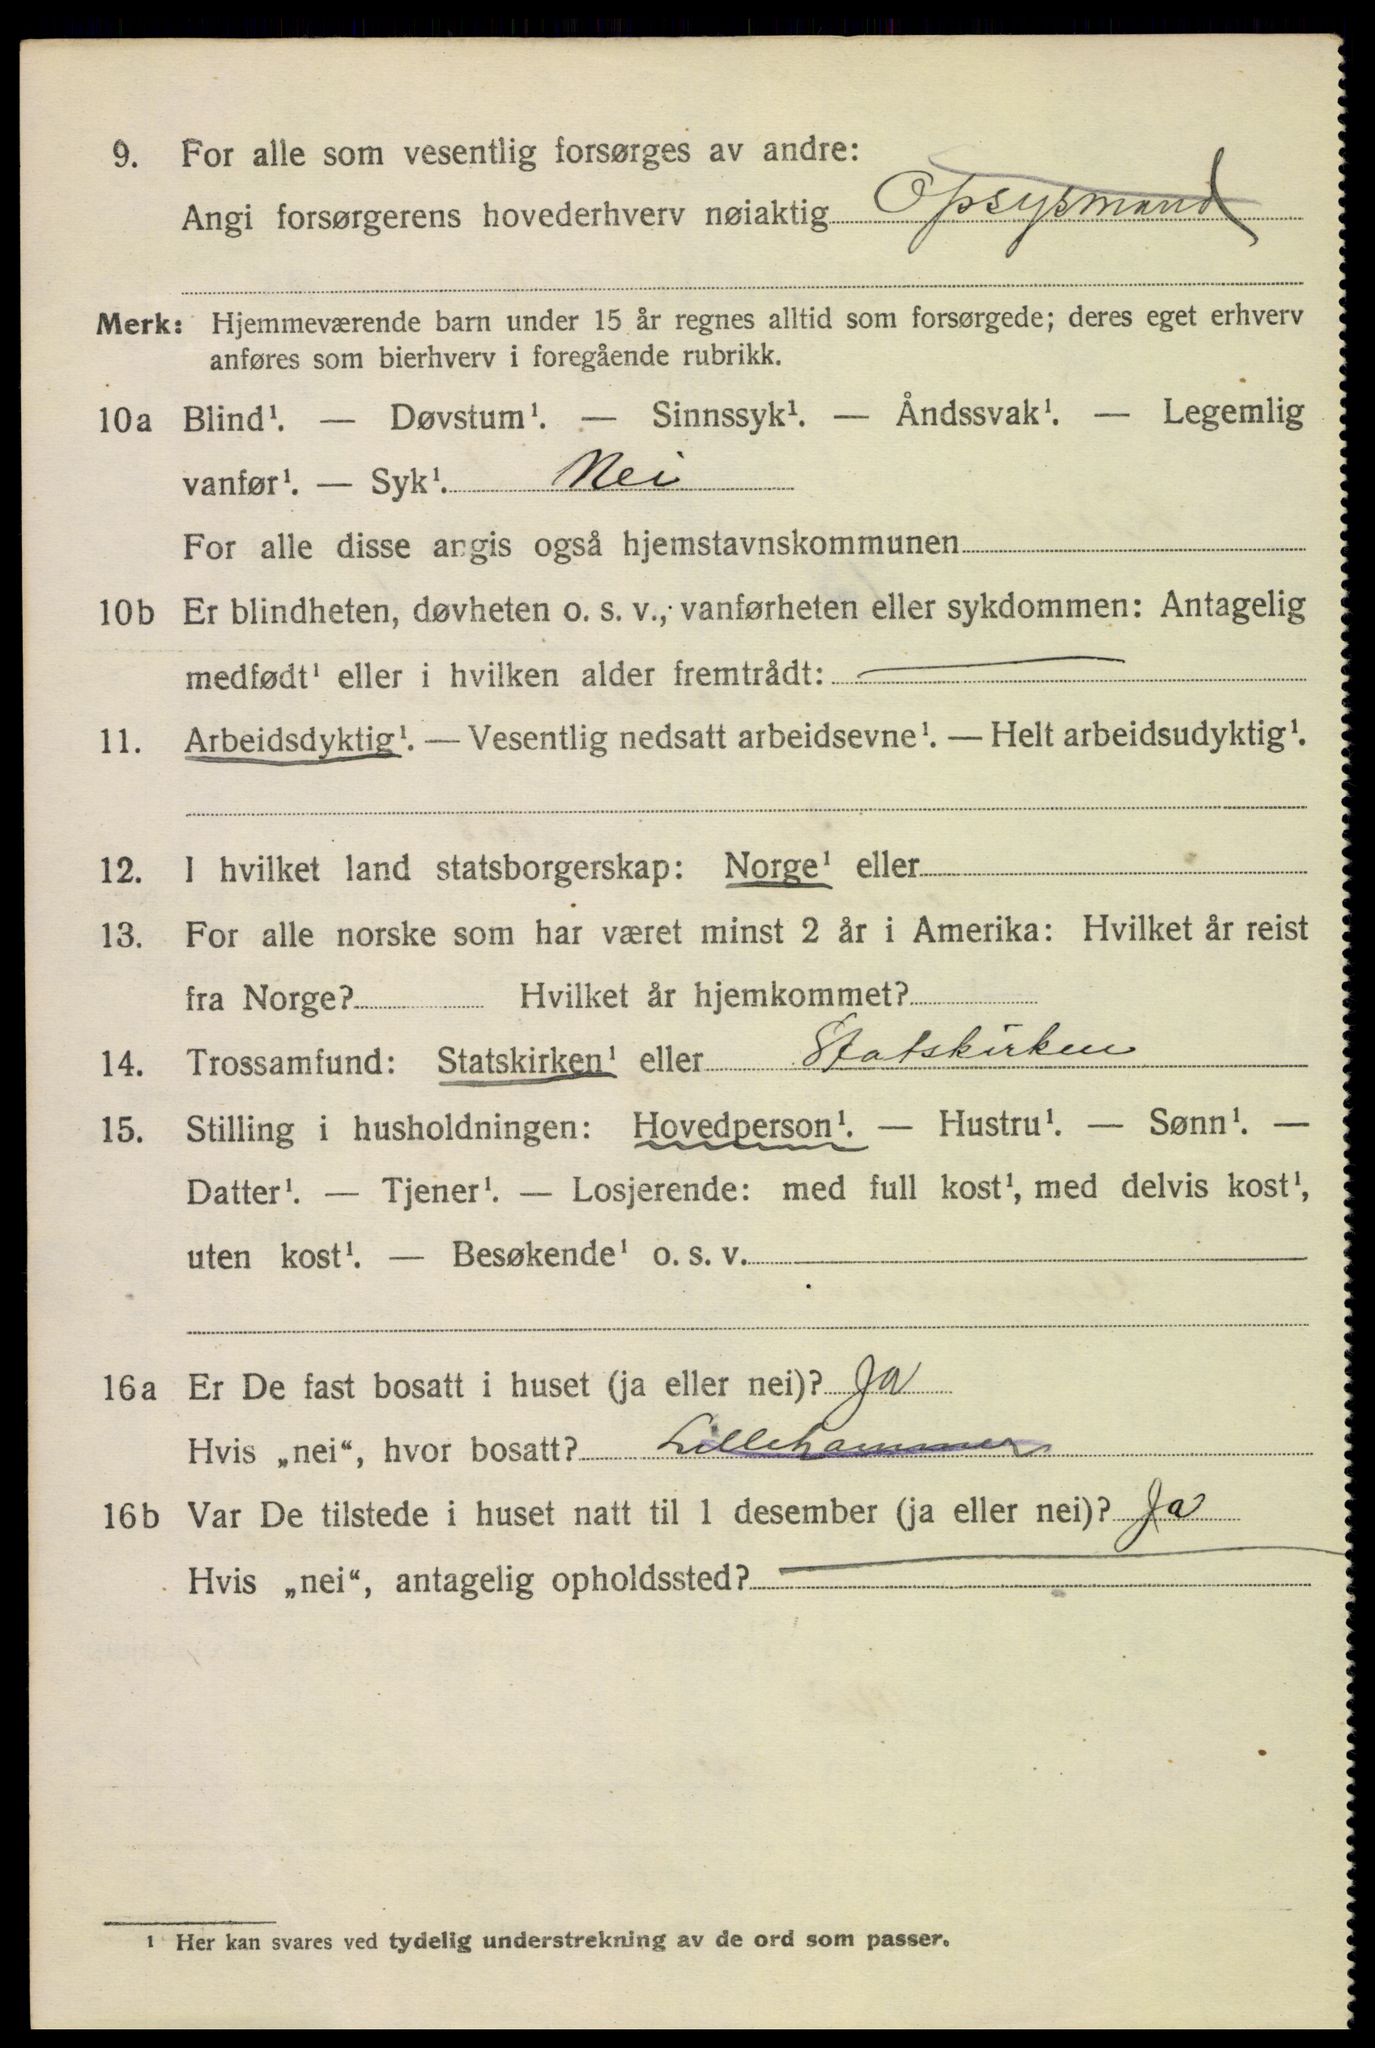 9. For alle som vesentlig forsørges av andre:
Angi forsørgerens hovederhverv nøiaktig Opsysmand
Merk: Hjemmeværende barn under 15 år regnes alltid som forsørgede; deres eget erhverv
anføres som bierhverv i foregående rubrikk.
10a Blind¹. — Døvstum¹. — Sinnssyk¹. — Åndssvak¹. — Legemlig
vanfør¹. — Syk¹. Nei
For alle disse angis også hjemstavnskommunen
10b Er blindheten, døvheten o. s. v., vanførheten eller sykdommen: Antagelig
medfødt¹ eller i hvilken alder fremtrådt:
11. Arbeidsdyktig¹. — Vesentlig nedsatt arbeidsevne¹. — Helt arbeidsudyktig¹.
12. I hvilket land statsborgerskap: Norge¹ eller
13. For alle norske som har været minst 2 år i Amerika: Hvilket år reist
fra Norge? Hvilket år hjemkommet?
14. Trossamfund: Statskirken¹ eller Statskirken
15. Stilling i husholdningen: Hovedperson¹. — Hustru¹. — Sønn¹. —
Datter¹. — Tjener¹. — Losjerende: med full kost¹, med delvis kost¹,
uten kost¹. — Besøkende¹ o. s. v.
16a Er De fast bosatt i huset (ja eller nei)? Ja
Hvis „nei“, hvor bosatt? Lillehammer
16b Var De tilstede i huset natt til 1 desember (ja eller nei)? Ja
Hvis „nei“, antagelig opholdssted?
¹ Her kan svares ved tydelig understrekning av de ord som passer.